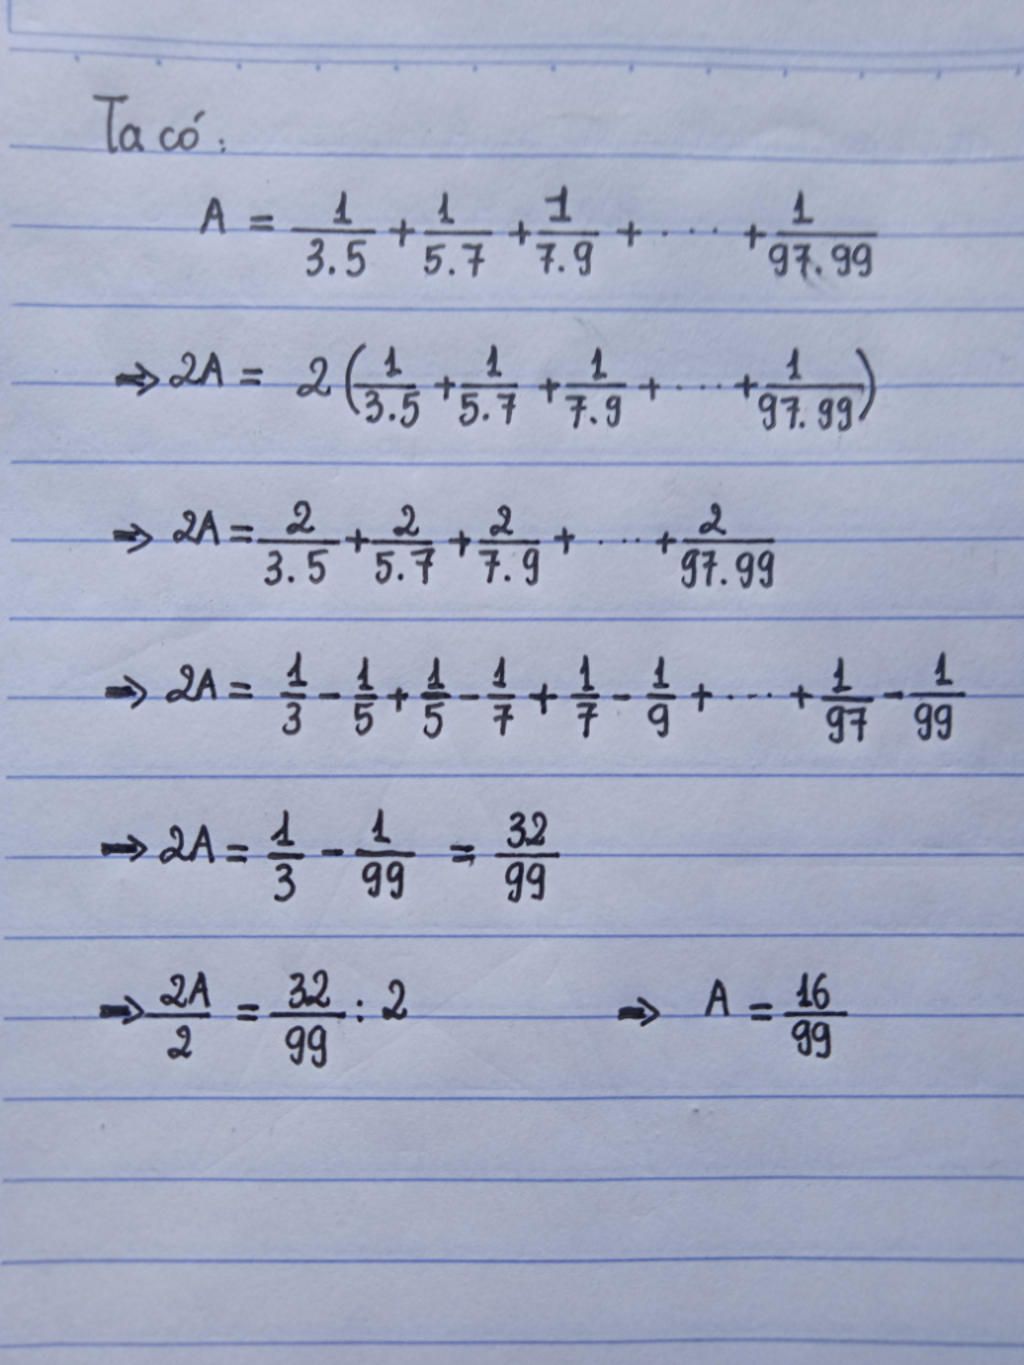 Ta có:
A = 1/3.5 + 1/5.7 + 1/7.9 + .... + 1/97.99
=> 2A = 2(1/3.5 + 1/5.7 + 1/7.9 + .... + 1/97.99)
=> 2A = 2/3.5 + 2/5.7 + 2/7.9 + .... + 2/97.99
=> 2A = 1/3 - 1/5 + 1/5 - 1/7 + 1/7 - 1/9 + .... + 1/97 - 1/99
=> 2A = 1/3 - 1/99 = 32/99
=> 2A/2 = 32/99 : 2 => A = 16/99